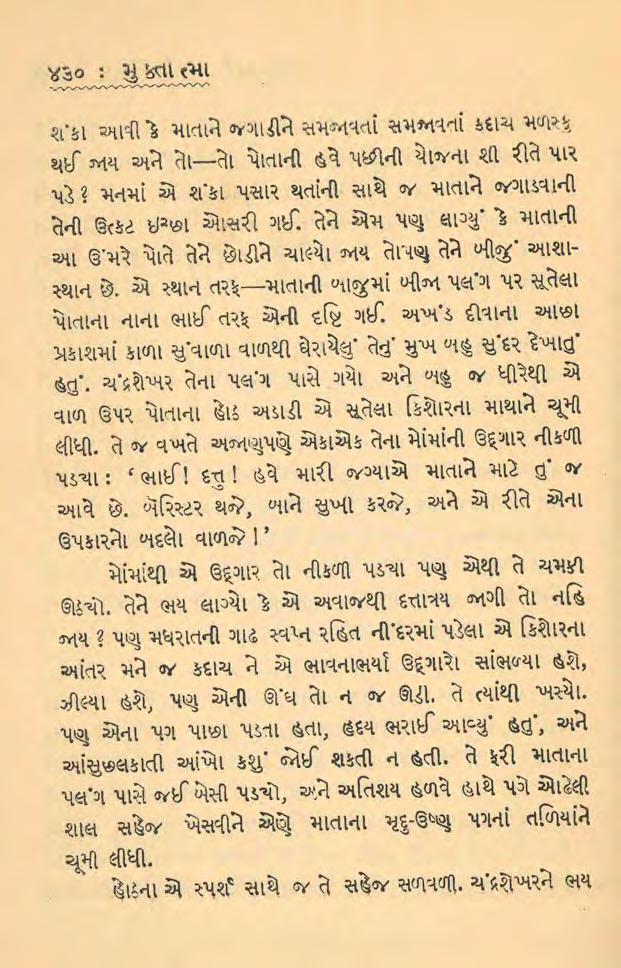 ૪૩૦ : મુક્તાત્મા
શંકા આવી કે માતાને જગાડીને સમજાવતાં સમજાવતાં કદાચ મળસ્કુ
થઈ જાય અને તો—તો પોતાની હવે પછીની યોજના શી રીતે પાર
પડે ? મનમાં એ શંકા પસાર થતાંની સાથે જ માતાને જગાડવાની
તેની ઉત્કટ ઇચ્છા ઓસરી ગઈ. તેને એમ પણ લાગ્યું કે માતાની
આ ઉંમરે પોતે તેને છોડીને ચાલ્યો જાય તોપણ તેને બીજું આશા-
સ્થાન છે. એ સ્થાન તરફ—માતાની બાજુમાં બીજા પલંગ પર સૂતેલા
પોતાના નાના ભાઈ તરફ એની દૃષ્ટિ ગઈ. અખંડ દીવાના આછા
પ્રકાશમાં કાળા સુંવાળા વાળથી ઘેરાયેલું તેનું મુખ બહુ સુંદર દેખાતું
હતું. ચંદ્રશેખર તેના પલંગ પાસે ગયો અને બહુ જ ધીરેથી એ
વાળ ઉપર પોતાના હોઠ અડાડી એ સૂતેલા કિશોરના માથાને ચૂમી
લીધી. તે જ વખતે અજાણપણે એકાએક તેના મોંમાંની ઉદ્ગાર નીકળી
પડયા : ‘ ભાઈ ! દત્તુ ! હવે મારી જગ્યાએ માતાને માટે તું જ
આવે છે. બૅરિસ્ટર થજે, બાને સુખી કરજે, અને એ રીતે એના
ઉપકારનો બદલો વાળજે ! ’
મોંમાંથી એ ઉદ્ગાર તો નીકળી પડયા પણ એથી તે ચમકી
ઊઠયો. તેને ભય લાગ્યો કે એ અવાજથી દત્તાત્રય જાગી તો નહિ
જાય ? પણ મધરાતની ગાઢ સ્વપ્ન રહિત નીંદરમાં પડેલા એ કિશોરના
આંતર મને જ કદાચ ને એ ભાવનાભર્યા ઉદ્ગારો સાંભળ્યા હશે,
ઝીલ્યા હશે, પણ એની ઊંઘ તો ન જ ઊડી. તે ત્યાંથી ખસ્યો.
પણ એના પગ પાછા પડતા હતા, હૃદય ભરાઈ આવ્યું હતું, અને
આંસુછલકાતી આંખો કશું જોઈ શકતી ન હતી. તે ફરી માતાના
પલંગ પાસે જઈ બેસી પડયો, અને અતિશય હળવે હાથે પગે ઓઢેલી
શાલ સહેજ ખેસવીને એણે માતાના મૃદુ-ઉષ્ણ પગનાં તળિયાંને
ચૂમી લીધી.
હોઠના એ સ્પર્શ સાથે જ તે સહેજ સળવળી. ચંદ્રશેખરને ભય